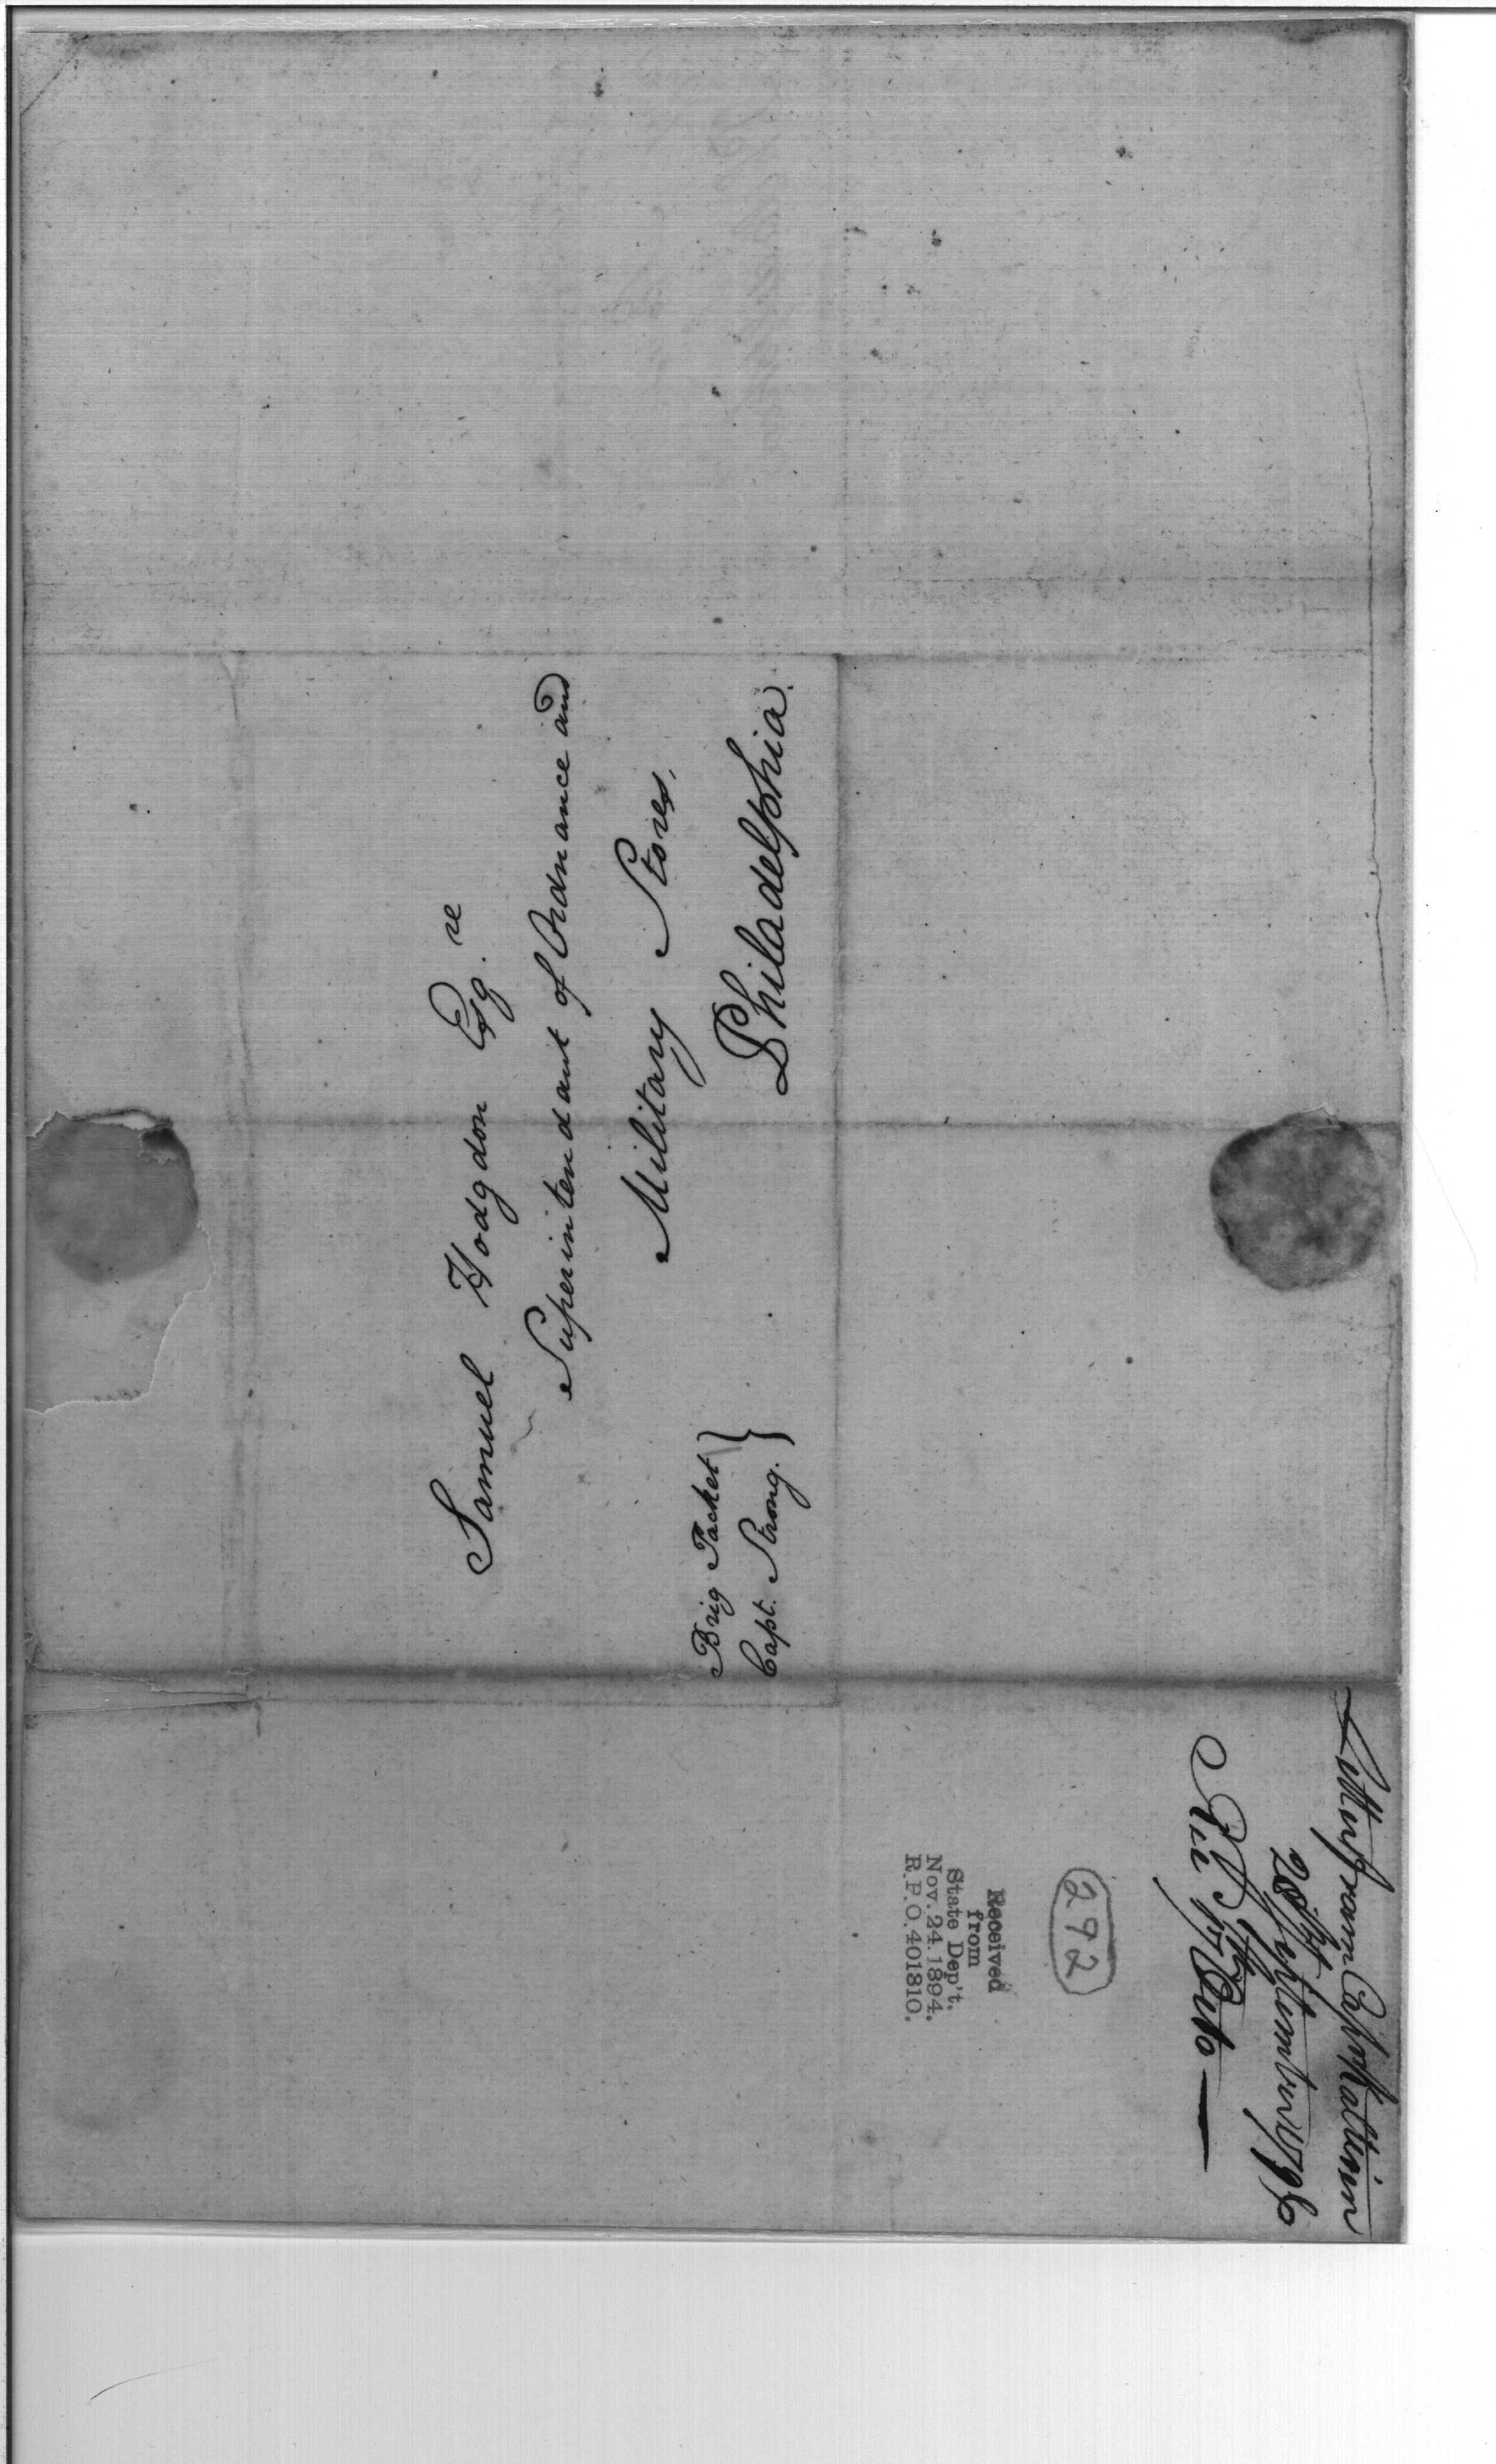 Samuel Hodgdon Esq.re
Superintendant of Ordnance and
Military Stores,
Philadelphia.
Brig Packet
Capt. Strong.
Letter from Cap
28th September 1796
Rec 17th Octo
292
Received
from
State Dep't.
Nov. 24. 1894.
R.P.O. 401810.